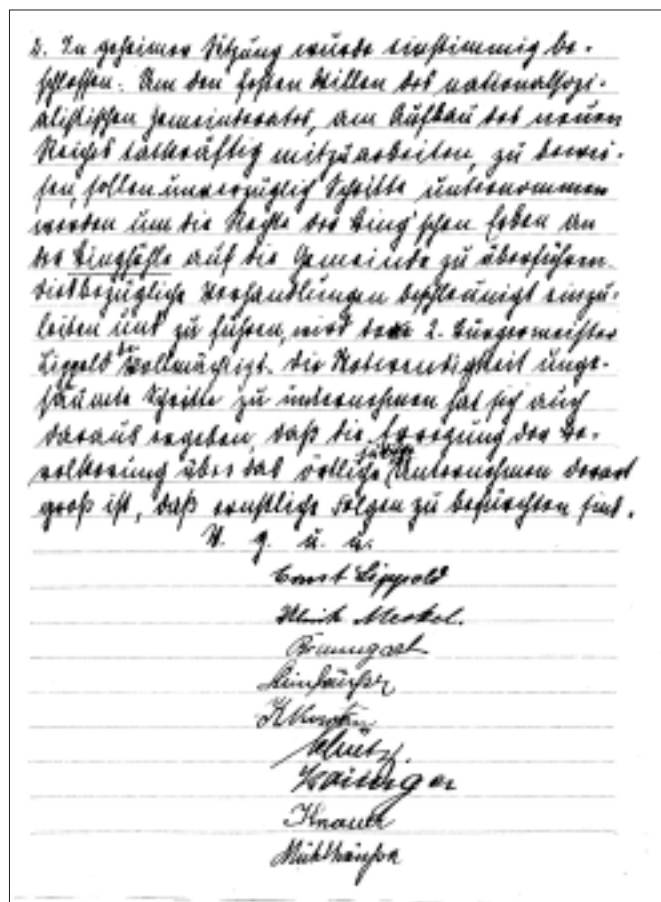 2. In geheimer Sitzung wurde einstimmig be-
schlossen: Um den festen Willen des nationalsozi-
alistischen Gemeinderates, am Aufbau des neuen
Reichs tatkräftig mitzuarbeiten, zu bewei-
sen, sollen unverzüglich Schritte unternommen
werden um die Rechte der Bing'schen Erben an
der Binghöhle auf die Gemeinde zu überführen.
Diesbezügliche Verhandlungen beschleunigt einzu-
leiten und zu führen, wird dem 2. Bürgermeister
Lippold bevollmächtigt. Die Notwendigkeit unge-
säumte Schritte zu unternehmen hat sich auch
daraus ergeben, daß die Erregung der Be-
völkerung über das örtliche jüdische Unternehmen derart
groß ist, daß ernstliche Folgen zu befürchten sind.
V. g. u. u.
Ernst Lippold
Ulrich Merkel.
Braungart
Schütz.
Knauer